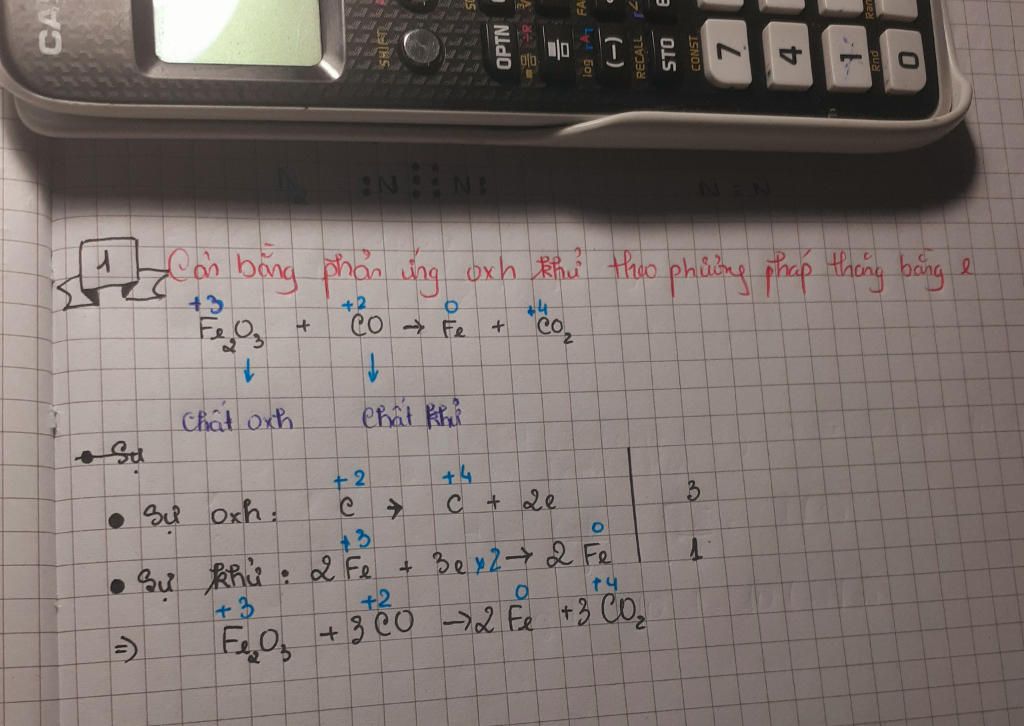 CA
SHIFT
OPTN
log
(−)
RECALL
STO
CONST
7
4
1
Rnd
0
Ran
:N N:
N ≡ N
1 Cân bằng phản ứng oxh khử theo phương pháp thăng bằng e
+3 +2 0 +4
Fe₂O₃ + CO → Fe + CO₂
↓ ↓
Chất oxh Chất khử
Sự
+2 +4
• Sự oxh: C → C + 2e 3
+3 0
• Sự khử: 2 Fe + 3e x2 → 2 Fe 1
+3 +2 0 +4
⇒ Fe₂O₃ + 3 CO → 2 Fe + 3 CO₂